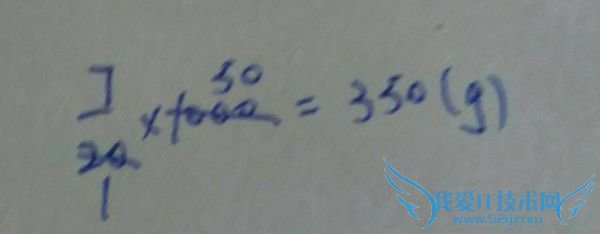 50
7/20 × 1000 = 350(g)
1
我爱IT技术网
www.52ij.com